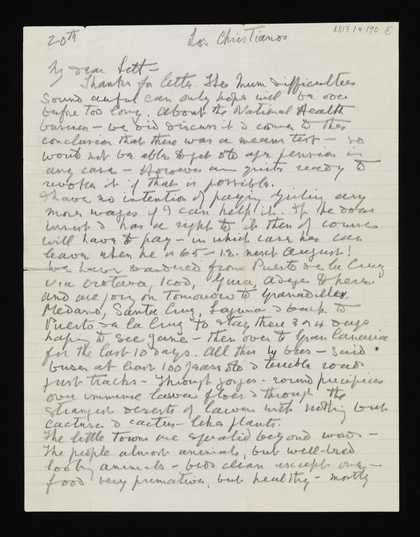 20th Los Christianos
My dear Lett -
Thanks for letter. The Mum difficulties
sound awful can only hope will be over
before too long. About the National Health
business - we did discuss it & came to the
conclusion that there was a means test - so
would not be able to get old age pension in
any case - However am quite ready to
if that is possible.
I have no intention of paying any
more wages if I can help it. If he does
insist & has a right to it then of course
will have to pay - in which case he can
leave when he is 65 - i.e. next August!
We have wandered from Puerto de la Cruz
via Orotava, Icod, Guia, Adeje to here
and are going on tomorrow to Granadilla,
Medano, Santa Cruz, Laguna & back to
Puerto de la Cruz to stay there 3 or 4 days
hoping to see June - then over to Gran Canaria
for the last 10 days. All this by bus - Such
buses at least 100 years old & terrible roads
just tracks - through gorges - round precipices
over immense lava flows & through the
strangest deserts of lava with nothing but
cactuses & cactus-like plants.
The little towns are beyond words -
The people almost animals, but well-bred
looking animals - beds clean except one -
food very primative, but healthy - mostly